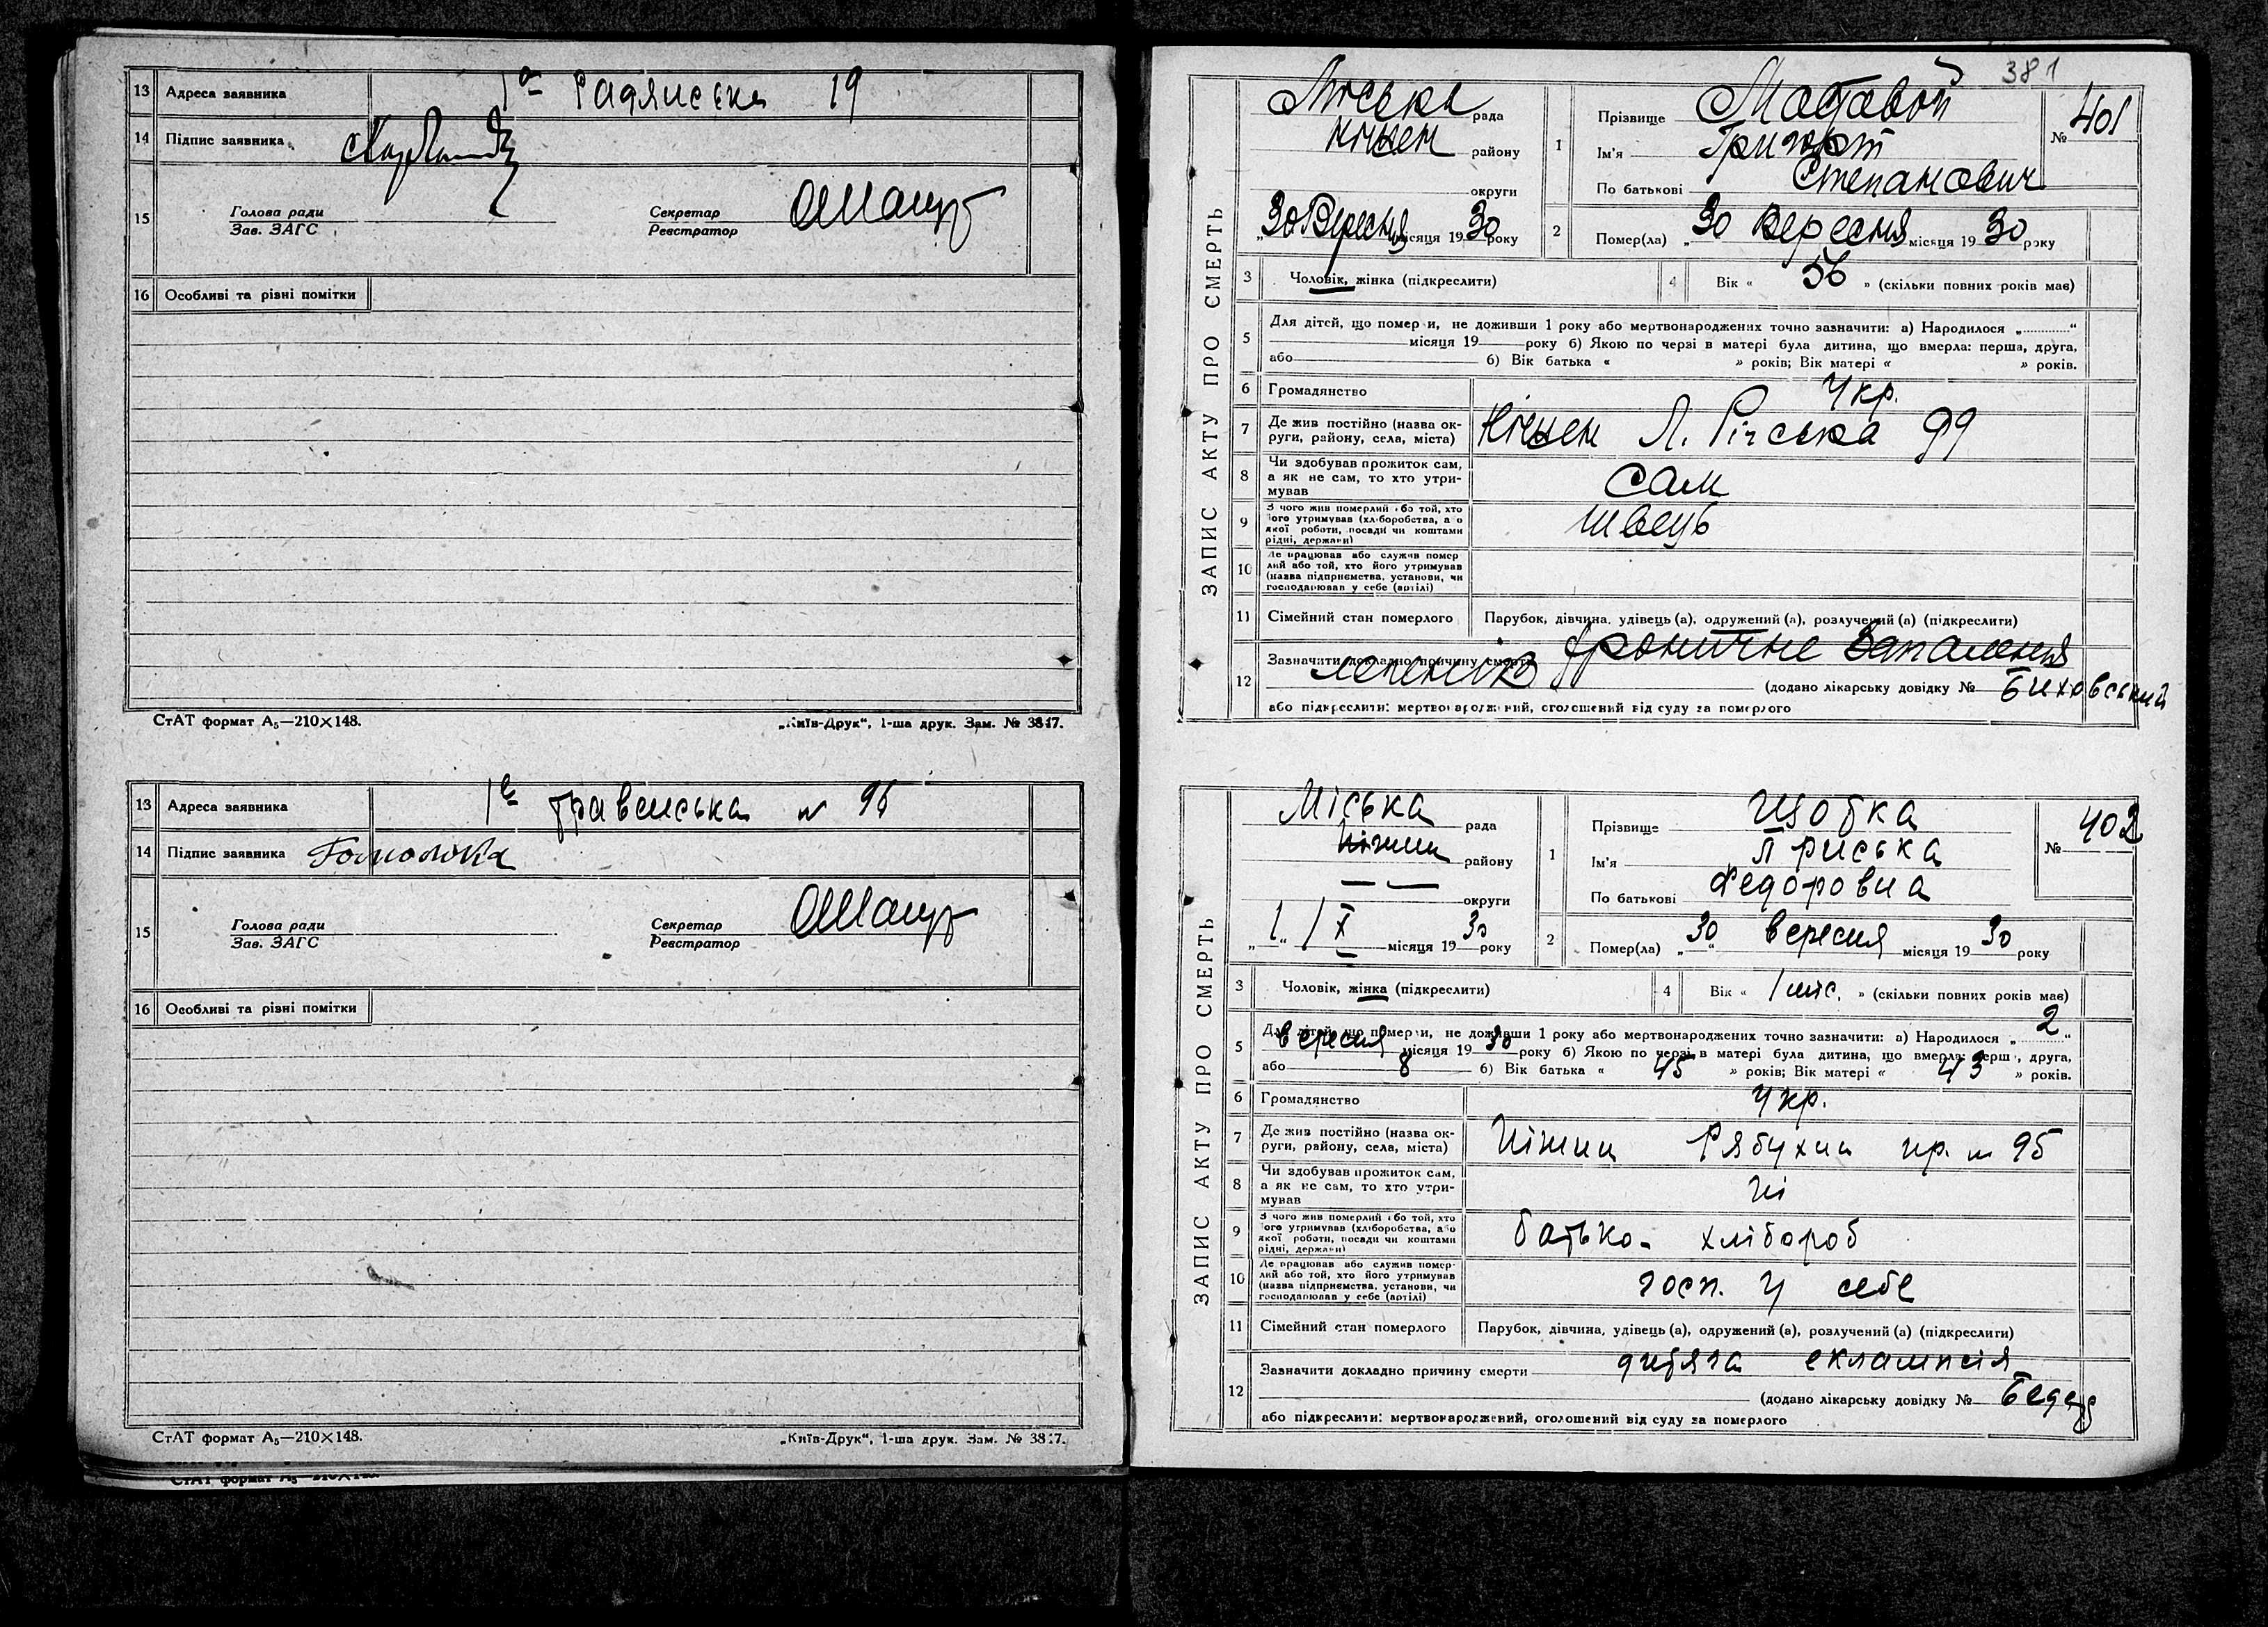 13 Адреса заявника 1а Радянська 19
14 Підпис заявника
15 Голова ради Зав. ЗАГС Секретар Реєстратор
16 Особливі та різні помітки
СтАТ формат А₅—210×148. „Київ-Друк“, 1-ша друк. Зам. № 3817.
13 Адреса заявника 1а травенська № 96
14 Підпис заявника
15 Голова ради Зав. ЗАГС Секретар Реєстратор
16 Особливі та різні помітки
СтАТ формат А₅—210×148. „Київ-Друк“, 1-ша друк. Зам. № 3817.
СтАТ формат А₅—210×148.
381
ЗАПИС АКТУ ПРО СМЕРТЬ
Міська рада
Ніжен району
округи
„30 Вересня місяця 1930 року
1 Прізвище
Ім'я Григорій
По батькові Степанович
№ 401
2 Помер(ла) „30 Вересня місяця 1930 року
3 Чоловік, жінка (підкреслити)
4 Вік « 56 » (скільки повних років має)
5 Для дітей, що померли, не доживши 1 року або мертвонароджених точно зазначити: а) Народилося „ “
місяця 19 року б) Якою по черзі в матері була дитина, що вмерла: перша, друга,
або 6) Вік батька « » років; Вік матері « » років.
6 Громадянство Укр.
7 Де жив постійно (назва ок-
руги, району, села, міста) Ніжен Л. Річська 99
8 Чи здобував прожиток сам,
а як не сам, то хто утри-
мував сам
9 З чого жив померлий або той, хто
його утримував (хліборобства, або
якої роботи, посади чи коштами
рідні, держави) швець
10 Де працював або служив помер
лий або той, хто його утримував
(назва підприємства, установи, чи
господарював у себе (артілі)
11 Сімейний стан померлого Парубок, дівчина, удівець (а), одружений (а), розлучений (а) (підкреслити)
12 Зазначити докладно причину смерти хронічне запалення
легенів (додано лікарську довідку № Биховський
або підкреслити: мертвонароджений, оголошений від суду за померлого
ЗАПИС АКТУ ПРО СМЕРТЬ
Міська рада
Ніжин району
— — округи
„1“ / X місяця 1930 року
1 Прізвище Щотка
Ім'я Приська
По батькові Федоровна
№ 402
2 Помер(ла) „30“ вересня місяця 1930 року
3 Чоловік, жінка (підкреслити)
4 Вік « 1 міс. » (скільки повних років має)
5 Для дітей, що померли, не доживши 1 року або мертвонароджених точно зазначити: а) Народилося „2“
вересня місяця 1930 року б) Якою по черзі в матері була дитина, що вмерла: перша, друга,
або 8 6) Вік батька « 45 » років; Вік матері « 43 » років.
6 Громадянство Укр.
7 Де жив постійно (назва ок-
руги, району, села, міста) Ніжин Рябухин пр. № 95
8 Чи здобував прожиток сам,
а як не сам, то хто утри-
мував ні
9 З чого жив померлий або той, хто
його утримував (хліборобства, або
якої роботи, посади чи коштами
рідні, держави) батько - хлібороб
10 Де працював або служив помер-
лий або той, хто його утримував
(назва підприємства, установи, чи
господарював у себе (артілі) госп. у себе
11 Сімейний стан померлого Парубок, дівчина, удівець (а), одружений (а), розлучений (а) (підкреслити)
12 Зазначити докладно причину смерти дитяга еклампсія
(додано лікарську довідку №
або підкреслити: мертвонароджений, оголошений від суду за померлого